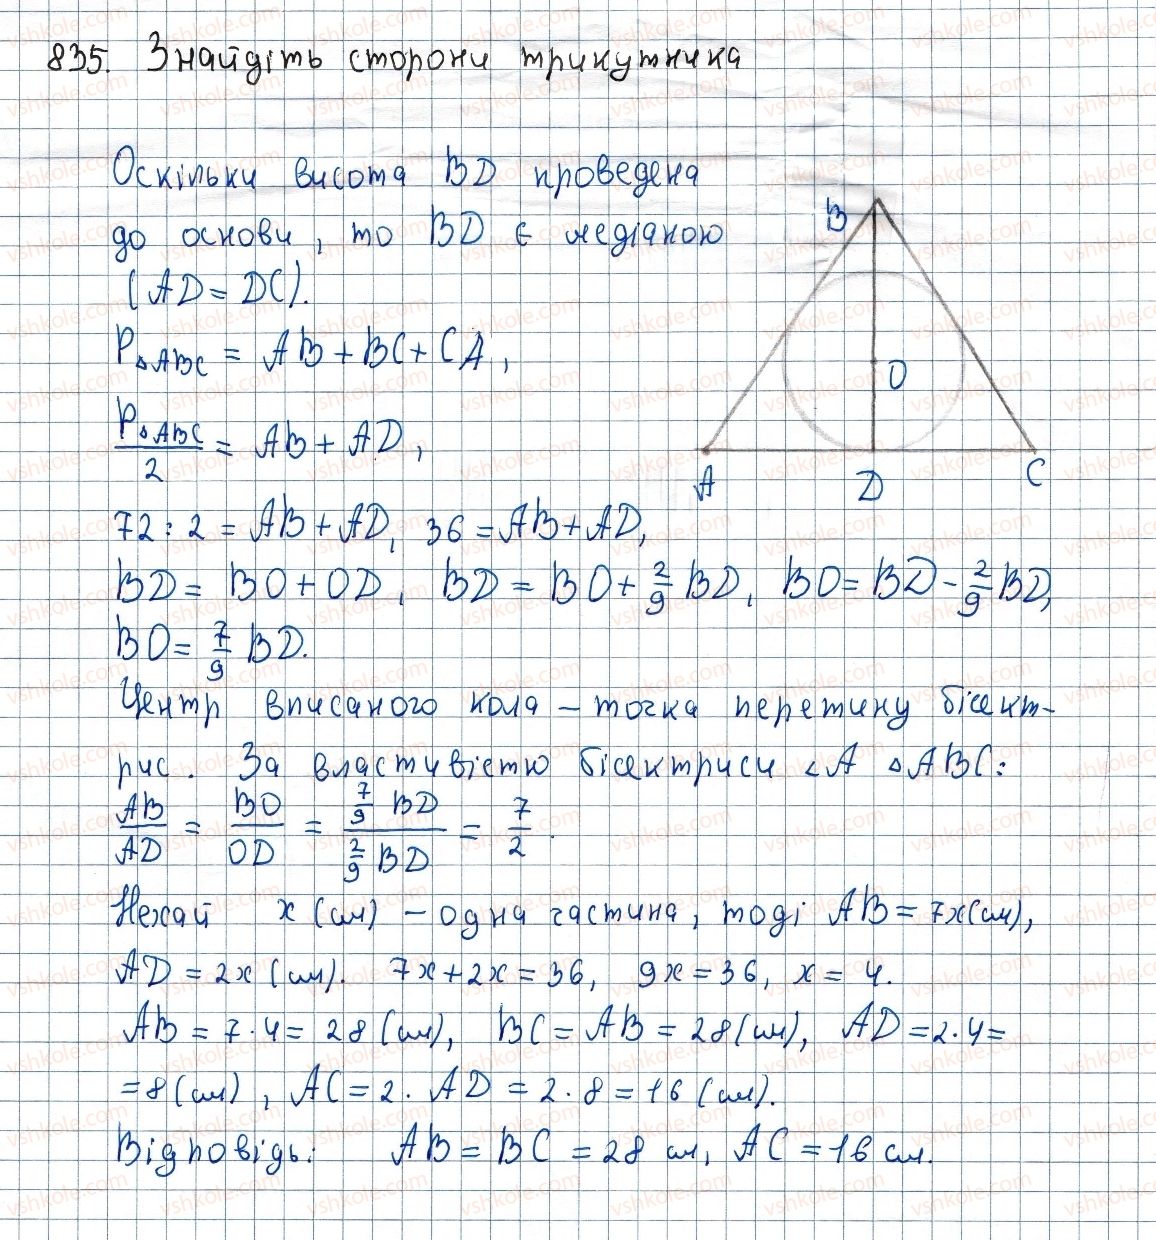 835. Знайдіть сторони трикутника
Оскільки висота BD проведена
до основи, то BD є медіаною
(AD = DC).
P△ABC = AB + BC + CA,
P△ABC/2 = AB + AD,
72 : 2 = AB + AD, 36 = AB + AD,
BD = BO + OD, BD = BO + 2/9 BD, BO = BD - 2/9 BD,
BO = 7/9 BD.
Центр вписаного кола – точка перетину бісект-
рис. За властивістю бісектриси ∠A △ABC:
AB/AD = BO/OD = 7/9 BD / 2/9 BD = 7/2.
Нехай x (см) – одна частина, тоді AB = 7x (см),
AD = 2x (см). 7x + 2x = 36, 9x = 36, x = 4.
AB = 7 · 4 = 28 (см), BC = AB = 28 (см), AD = 2 · 4 =
= 8 (см), AC = 2 · AD = 2 · 8 = 16 (см).
Відповідь: AB = BC = 28 см, AC = 16 см.
B
O
A
D
C
vshkole.com